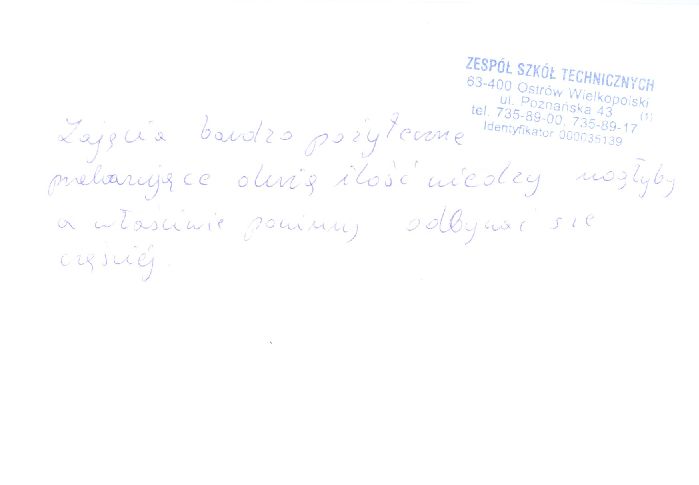 ZESPÓŁ SZKÓŁ TECHNICZNYCH
63-400 Ostrów Wielkopolski
ul. Poznańska 43 (1)
tel. 735-89-00, 735-89-17
Identyfikator 000035139
Zajęcia bardzo pożyteczne
przekazujące dużą ilość wiedzy mogłyby
a właściwie powinny odbywać się
częściej.